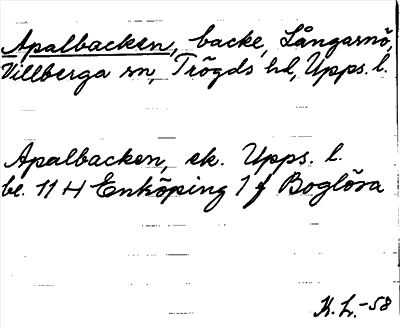 Apalbacken, backe, Långarnö,
Villberga sn, Trögds hd, Upps. l.
Apalbacken, ek. Upps. l.
bl. 11 H Enköping 1 f Boglösa
K. L. -58